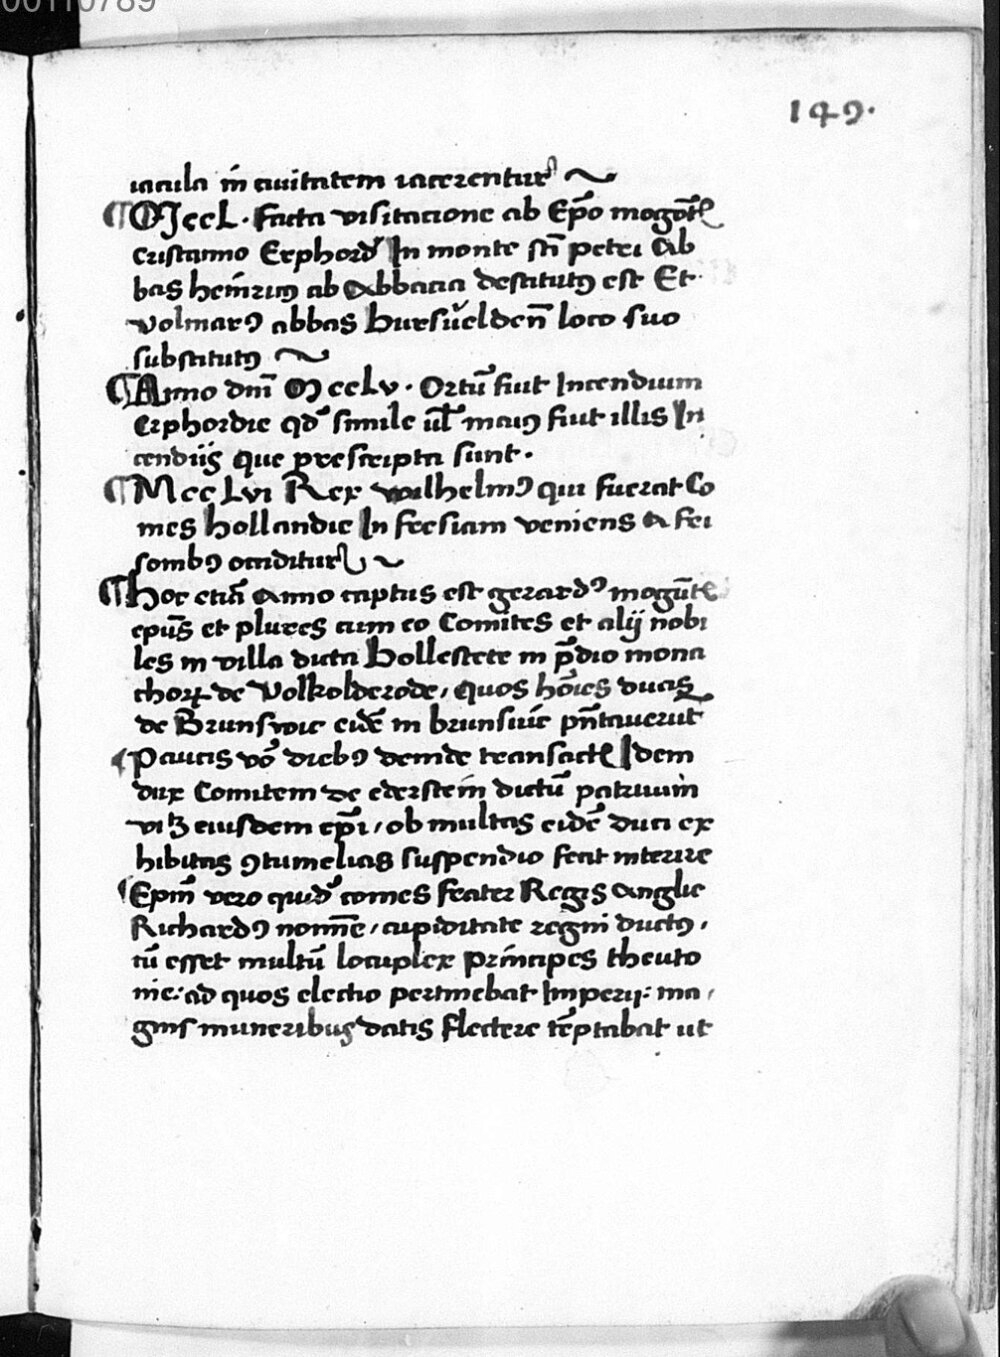 00110789
149.
iacula in ciuitatem iacerentur
¶ MccL. facta visitacione ab Ep̄o magōt
cristanno Erphord In monte scti petri Ab
bas heinricꝰ ab Abbacia destitutꝰ est Et
volmarꝰ abbas Bursueldeñ loco suo
substitutꝰ
¶ Anno dn̄i MccLv. Ortū fuit Incendium
Erphordie qd simile ul̄ maiꝰ fuit illis In
cendijs que prescripta sunt.
¶ MccLvi Rex wilhelmꝰ qui fuerat Co
mes hollandie In fresiam veniens a fri
sonibꝰ occiditur
¶ Hoc etiā Anno captus est gerardꝰ mogūt
ep̄us et plures cum eo Comites et alij nobi
les in villa dicta Bollestete in p̄dio mona
choꝝ de Volkolderode, quos hōies ducis
de Brunswic eidē in brunswic pn̄tauerūt
¶ Paucis vō diebꝰ deinde transact Idem
dux Comitem de eberstein dictū patruum
vitꝫ eiusdem ep̄i, ob multas eidē duci ex
hibitas ꝯtumelias suspendio fecit interire
¶ Epm̄ vero quidꝰ comes frater Regis Anglie
Richardꝰ nomīe, cupiditate regni ductꝰ,
cū esset multū locuplex principes theuto
nie: ad quos electio pertinebat Imperij: ma,
gnis muneribus datis flectere tēptabat ut